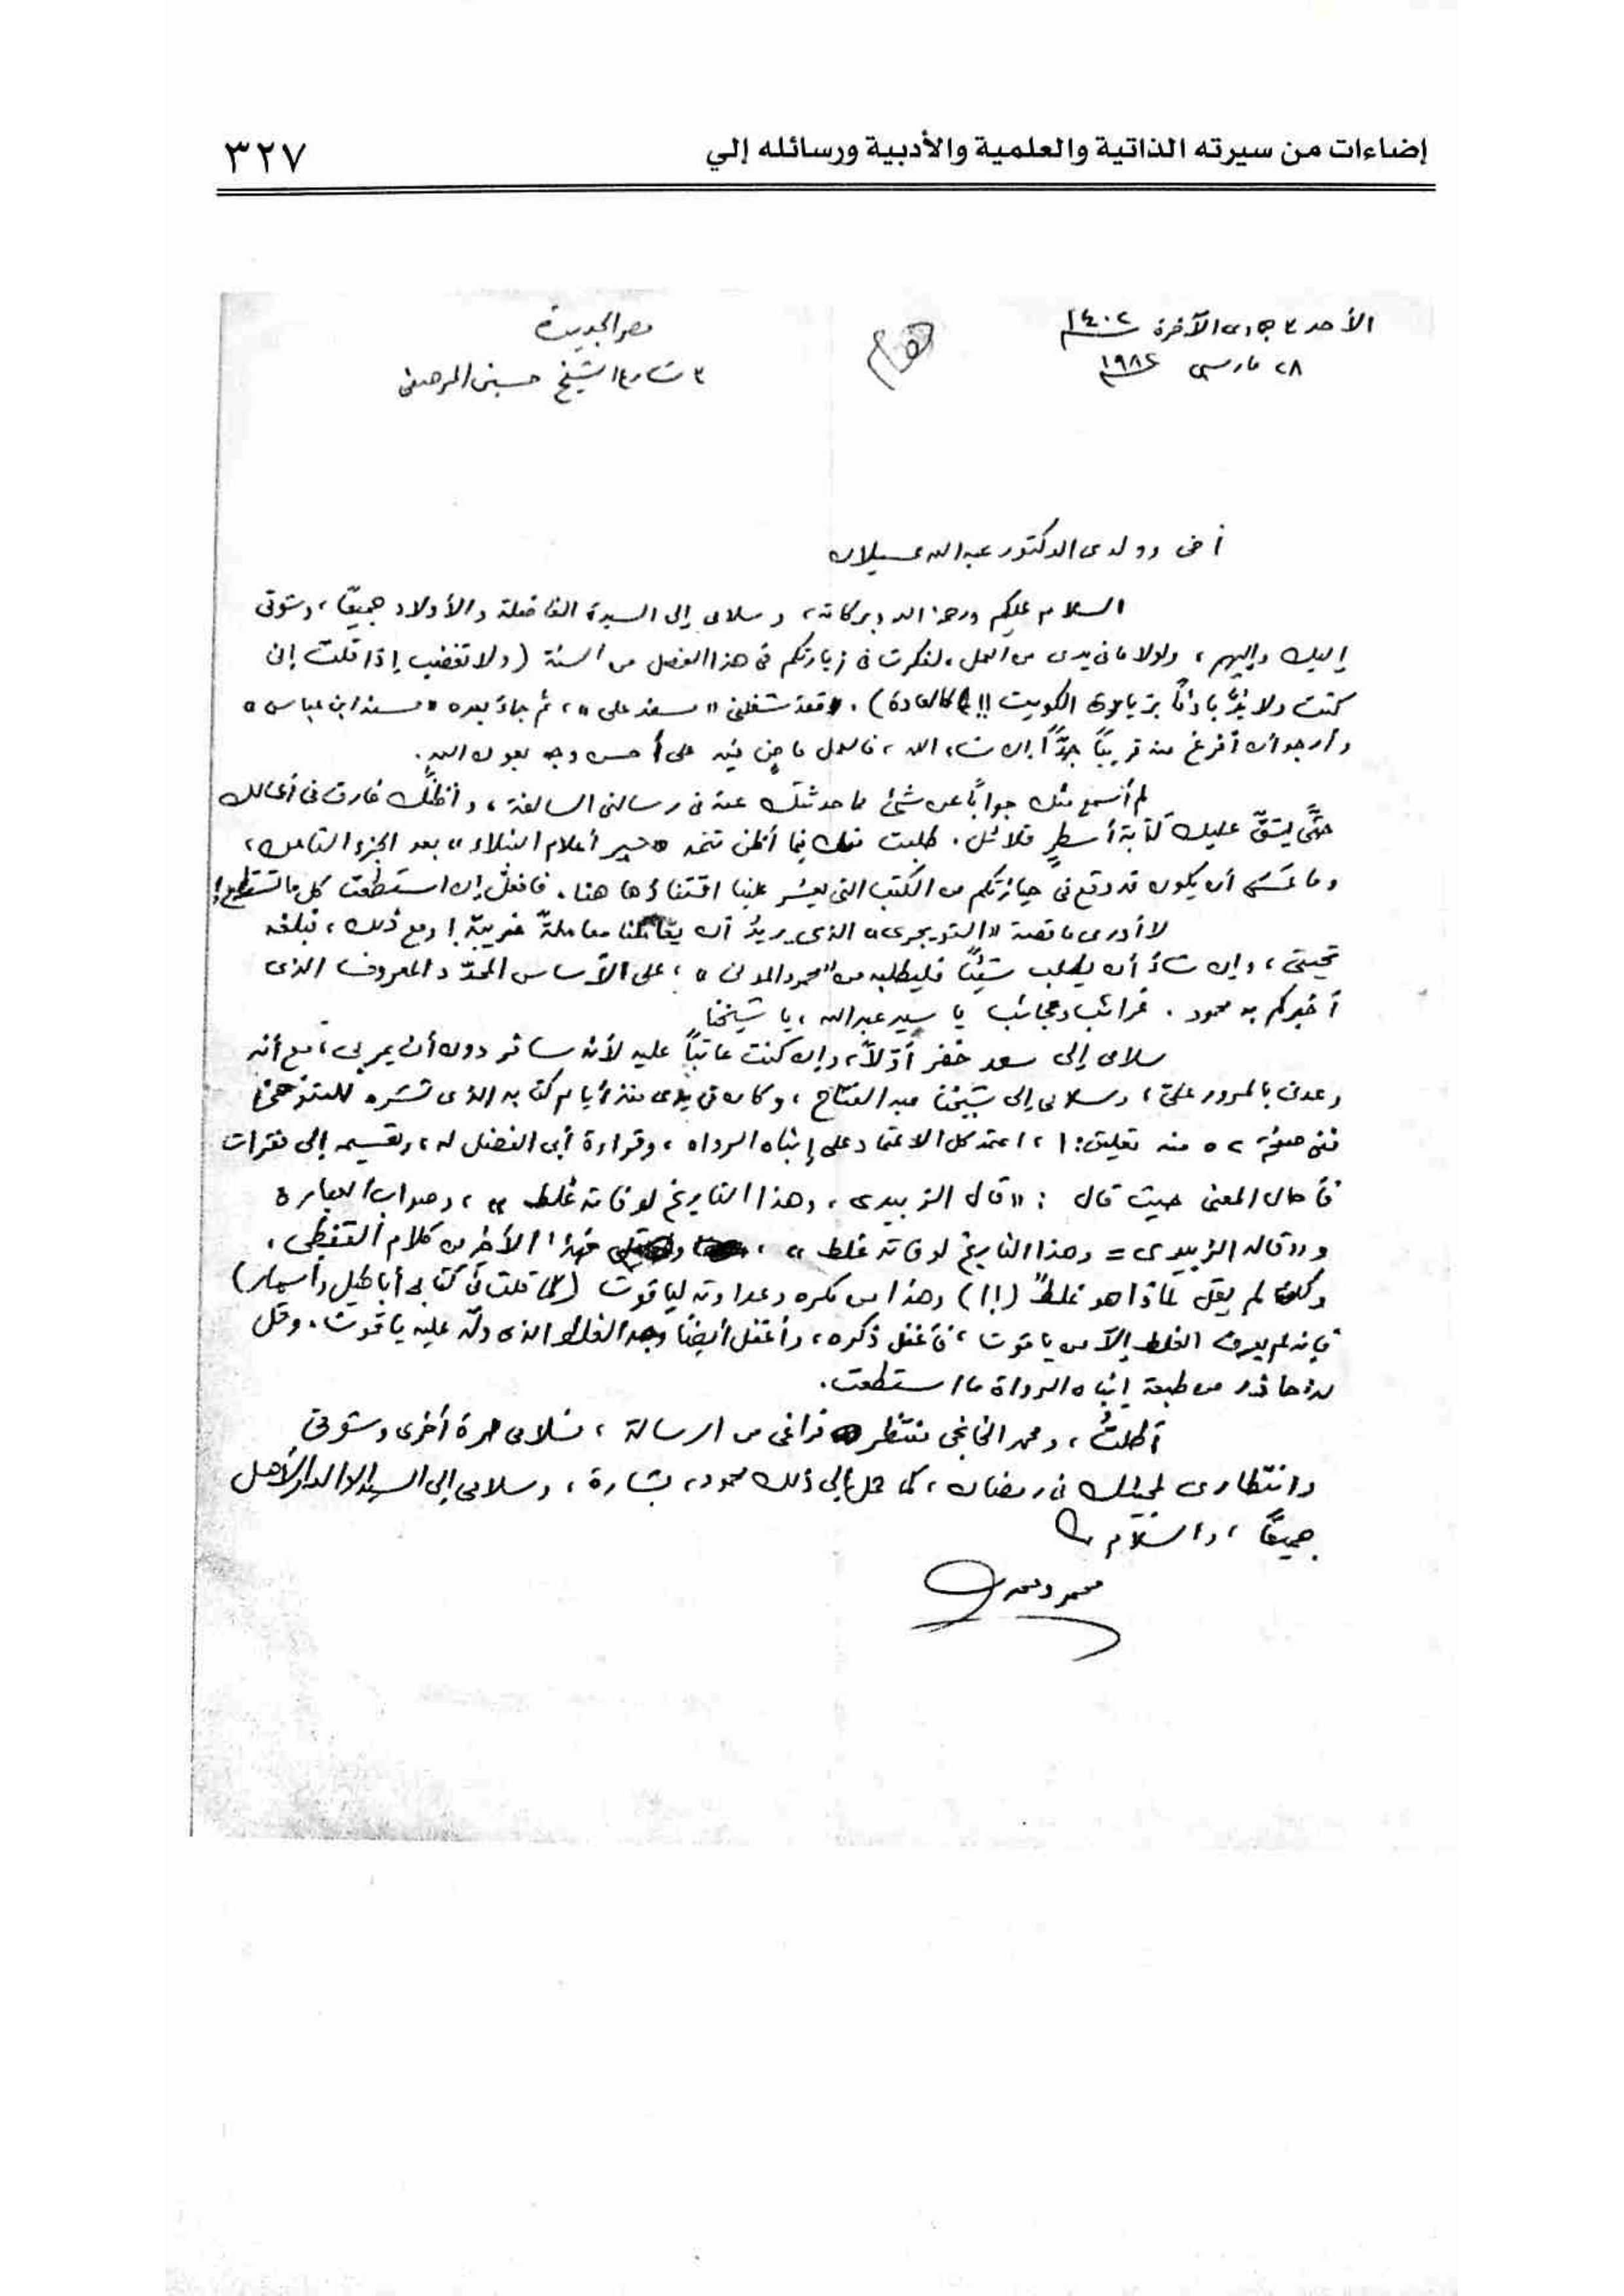 إضاءات من سيرته الذاتية والعلمية والأدبية ورسائله إلي
٣٢٧
الأحد ٣ جمادى الآخرة ١٤٠٢
٢٨ مارس ١٩٨٢
مصر الجديدة
٣ شارع الشيخ حسين المرصفى
أخى وولدى الدكتور عبد الله عسيلان
السلام عليكم ورحمة الله وبركاته، وسلامى إلى السيدة الفاضلة والأولاد جميعًا، وشوقى
إليك وإليهم، ولولا ما فى يدى من العمل، لفكرت فى زيارتكم فى هذا الفصل من السنة (ولا تغضب إذا قلت إنى
كنت ولا بدَّ بادئًا بزيارة الكويت !! كالعادة). فقد شغلنى «مسند على»، ثم جاء بعده «مسند ابن عباس»
وأرجو أن أفرغ منه قريبًا جدًّا إن شاء الله، فالعمل ماضٍ فيه على أحسن وجه بعون الله.
لم أسمع منك جوابًا عن شئ مما حدثتك عنه فى رسالتى السالفة، وأظنُّك غارق فى أعمالك
حتَّى ليشقّ عليك كتابة أسطرٍ قلائل. طلبت منك فيما أظن تتمة «سير أعلام النبلاء» بعد الجزء الثامن،
وما عَسَى أن يكون قد وقع فى حيازتكم من الكتب التى يعسُر علينا اقتناؤها هنا. فافعلْ إن استطعت كل ما تستطيع!
لا أدرى ما قصة «التويجرى» الذى يريدُ أن يعاملنا معاملةً غريبةً! ومع ذلك، فبلغه
تحيتى، وإن شاء أن يطلب شيئًا فليطلبه من «محمود المدنى»، على الأساس المحدّد المعروف الذى
أخبركم به محمود. غرائب وعجائب يا سيد عبد الله، يا شيخنا
سلامى إلى سعد خضر أوّلًا، وإن كنت عاتبًا عليه لأنه سافر دون أن يمر بى، مع أنه
وعدنى بالمرور علىّ، وسلامى إلى شيخنا عبد الفتاح، وكان فى يدى منذ أيام كتابه الذى نشره للتنوخى
ففى صفحة ٢٥ منه تعليق: ١، اعتمد كل الاعتماد على إنباه الرواه، وقراءة أبى الفضل له، وتقسيمه إلى فقرات
فأحال المعنى حيث قال: «قال الزبيدى، وهذا التاريخ لوفاته غلط»، وصواب العبارة
«وقاله الزبيدى = وهذا التاريخ لوفاته غلط»، فهذا الأخير من كلام القفطى،
ولكنه لم يقل لماذا هو غلطٌ (!!) وهذا من مكره وعداوته لياقوت (كما قلت فى كتابى أباطيل وأسمار)
فإنه لم يعرف الغلط إلّا من ياقوت، فأغفل ذكره، وأغفل أيضًا وجه الغلط الذى دلّه عليه ياقوت. وقل
له: حاذر من طبعة إنباه الرواة ما استطعت.
أطلتُ، ومحمد الخانجى منتظر فراغى من الرسالة، فسلامى مرة أخرى وشوقى
وانتظارى لمجيئك فى رمضان، كما حمل إلى ذلك محمود، بشارة، وسلامى إلى السيد الوالد والأهل
جميعًا، والسلام
محمود محمد شاكر